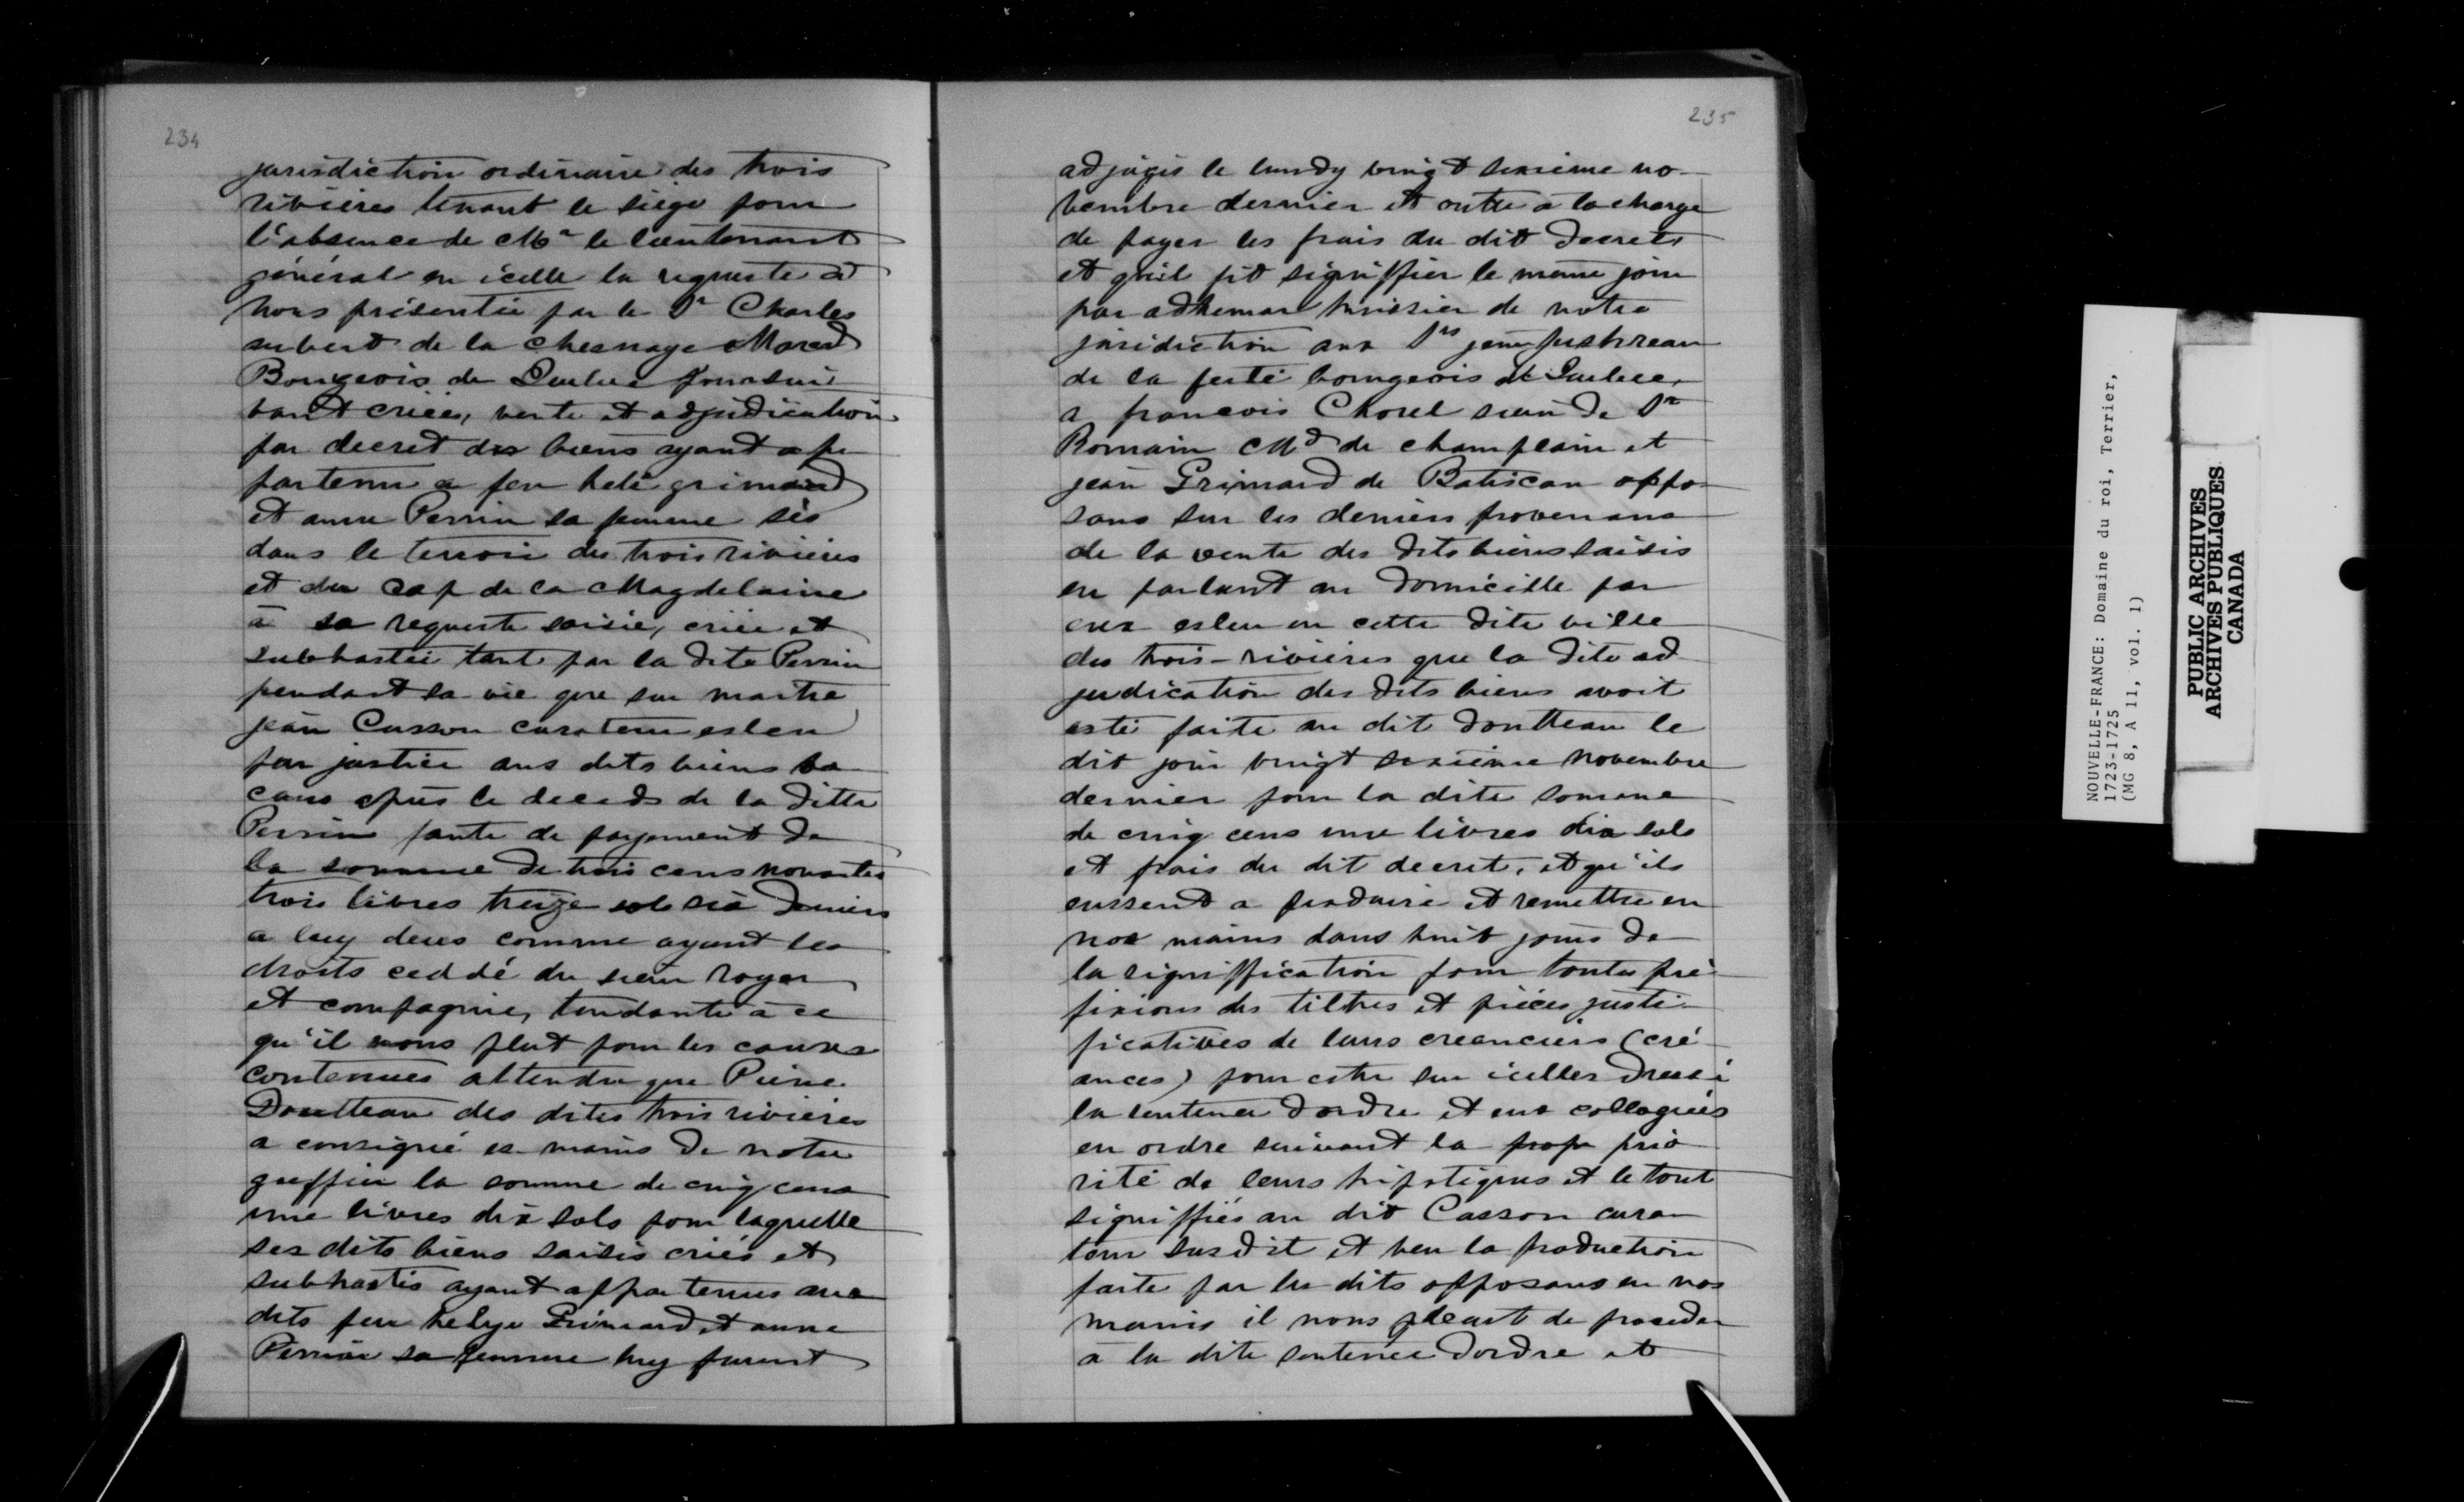 234
jurisdiction ordinaire des trois
rivières tenant le siège pour
l'absence de Mr le lieutenant
général en icelle la requeste a
nous présentée par le Sr Charles
aubert de la chesnaye March
Bourgeois de Quebec poursui
vant criées, vente et adjudication
par decret des biens ayant ap
partenu a feu helie grimard
et anne Perrin sa femme sis
dans le terroir des trois rivières
et du cap de la Magdelaine
à sa requeste saisie, criée et
subhastée tant par la dite Perrin
pendant sa vie que sur maitre
jean Cusson curateur esleu
par justice aus dits biens va
cans apres le deceds de la ditte
Perrin faute de payement de
la somme de trois cens nonante
trois livres treize sols six deniers
a luy deues comme ayant les
droits ceddé du sieur roger
et compagnie, tendante à ce
qu'il nous plut pour les causes
contenues attendu que Pierre
Doutteau des dites trois rivières
a consigné es mains de notre
greffier la somme de cinq cens
une livres dix sols pour laquelle
ses dits biens saisis criés et
subhastés ayant appartenus aux
dits feu helye Grimard et anne
Perrin sa femme luy furent
235
adjugés le lundy vingt sixieme no-
vembre dernier et outre a la charge
de payer les frais du dit decret
et qu'il fit signiffier le meme jour
par adhemar huissier de notre
jurisdiction aux Srs jean
de la ferté bourgeois de Quebec,
a francois Chorel sieur de St
Romain Md de champlain et
jean Grimard de Batiscan oppo-
sans sur les deniers provenans
de la vente des dits biens saisis
en parlant au domicille par
eux esleu en cette dite ville
des trois-rivières que la dite ad
judication des dits biens avoit
esté faite au dit Doutteau le
dit jour vingt sixième novembre
dernier pour la dite somme
de cinq cens une livres dix sols
et frais du dit decret, et qu'ils
eussent a produire et remettre en
nos mains dans huit jours de
la signiffication pour toutes pré
fixions des tiltres et pièces justi-
ficatives de leurs creanciers (cré
ances) pour estre sur icelles dressé
la sentence d'ordre et eux colloqués
en ordre suivant la prop prio
rité de leurs hipotèques et le tout
signiffiés au dit Casson cura-
teur susdit et veu la production
faite par les dits opposans en nos
mains il nous pleust de proceder
a la dite sentence d'ordre et
NOUVELLE-FRANCE: Domaine du roi, Terrier,
1723-1725
(MG 8, A 11, vol. 1)
PUBLIC ARCHIVES
ARCHIVES PUBLIQUES
CANADA